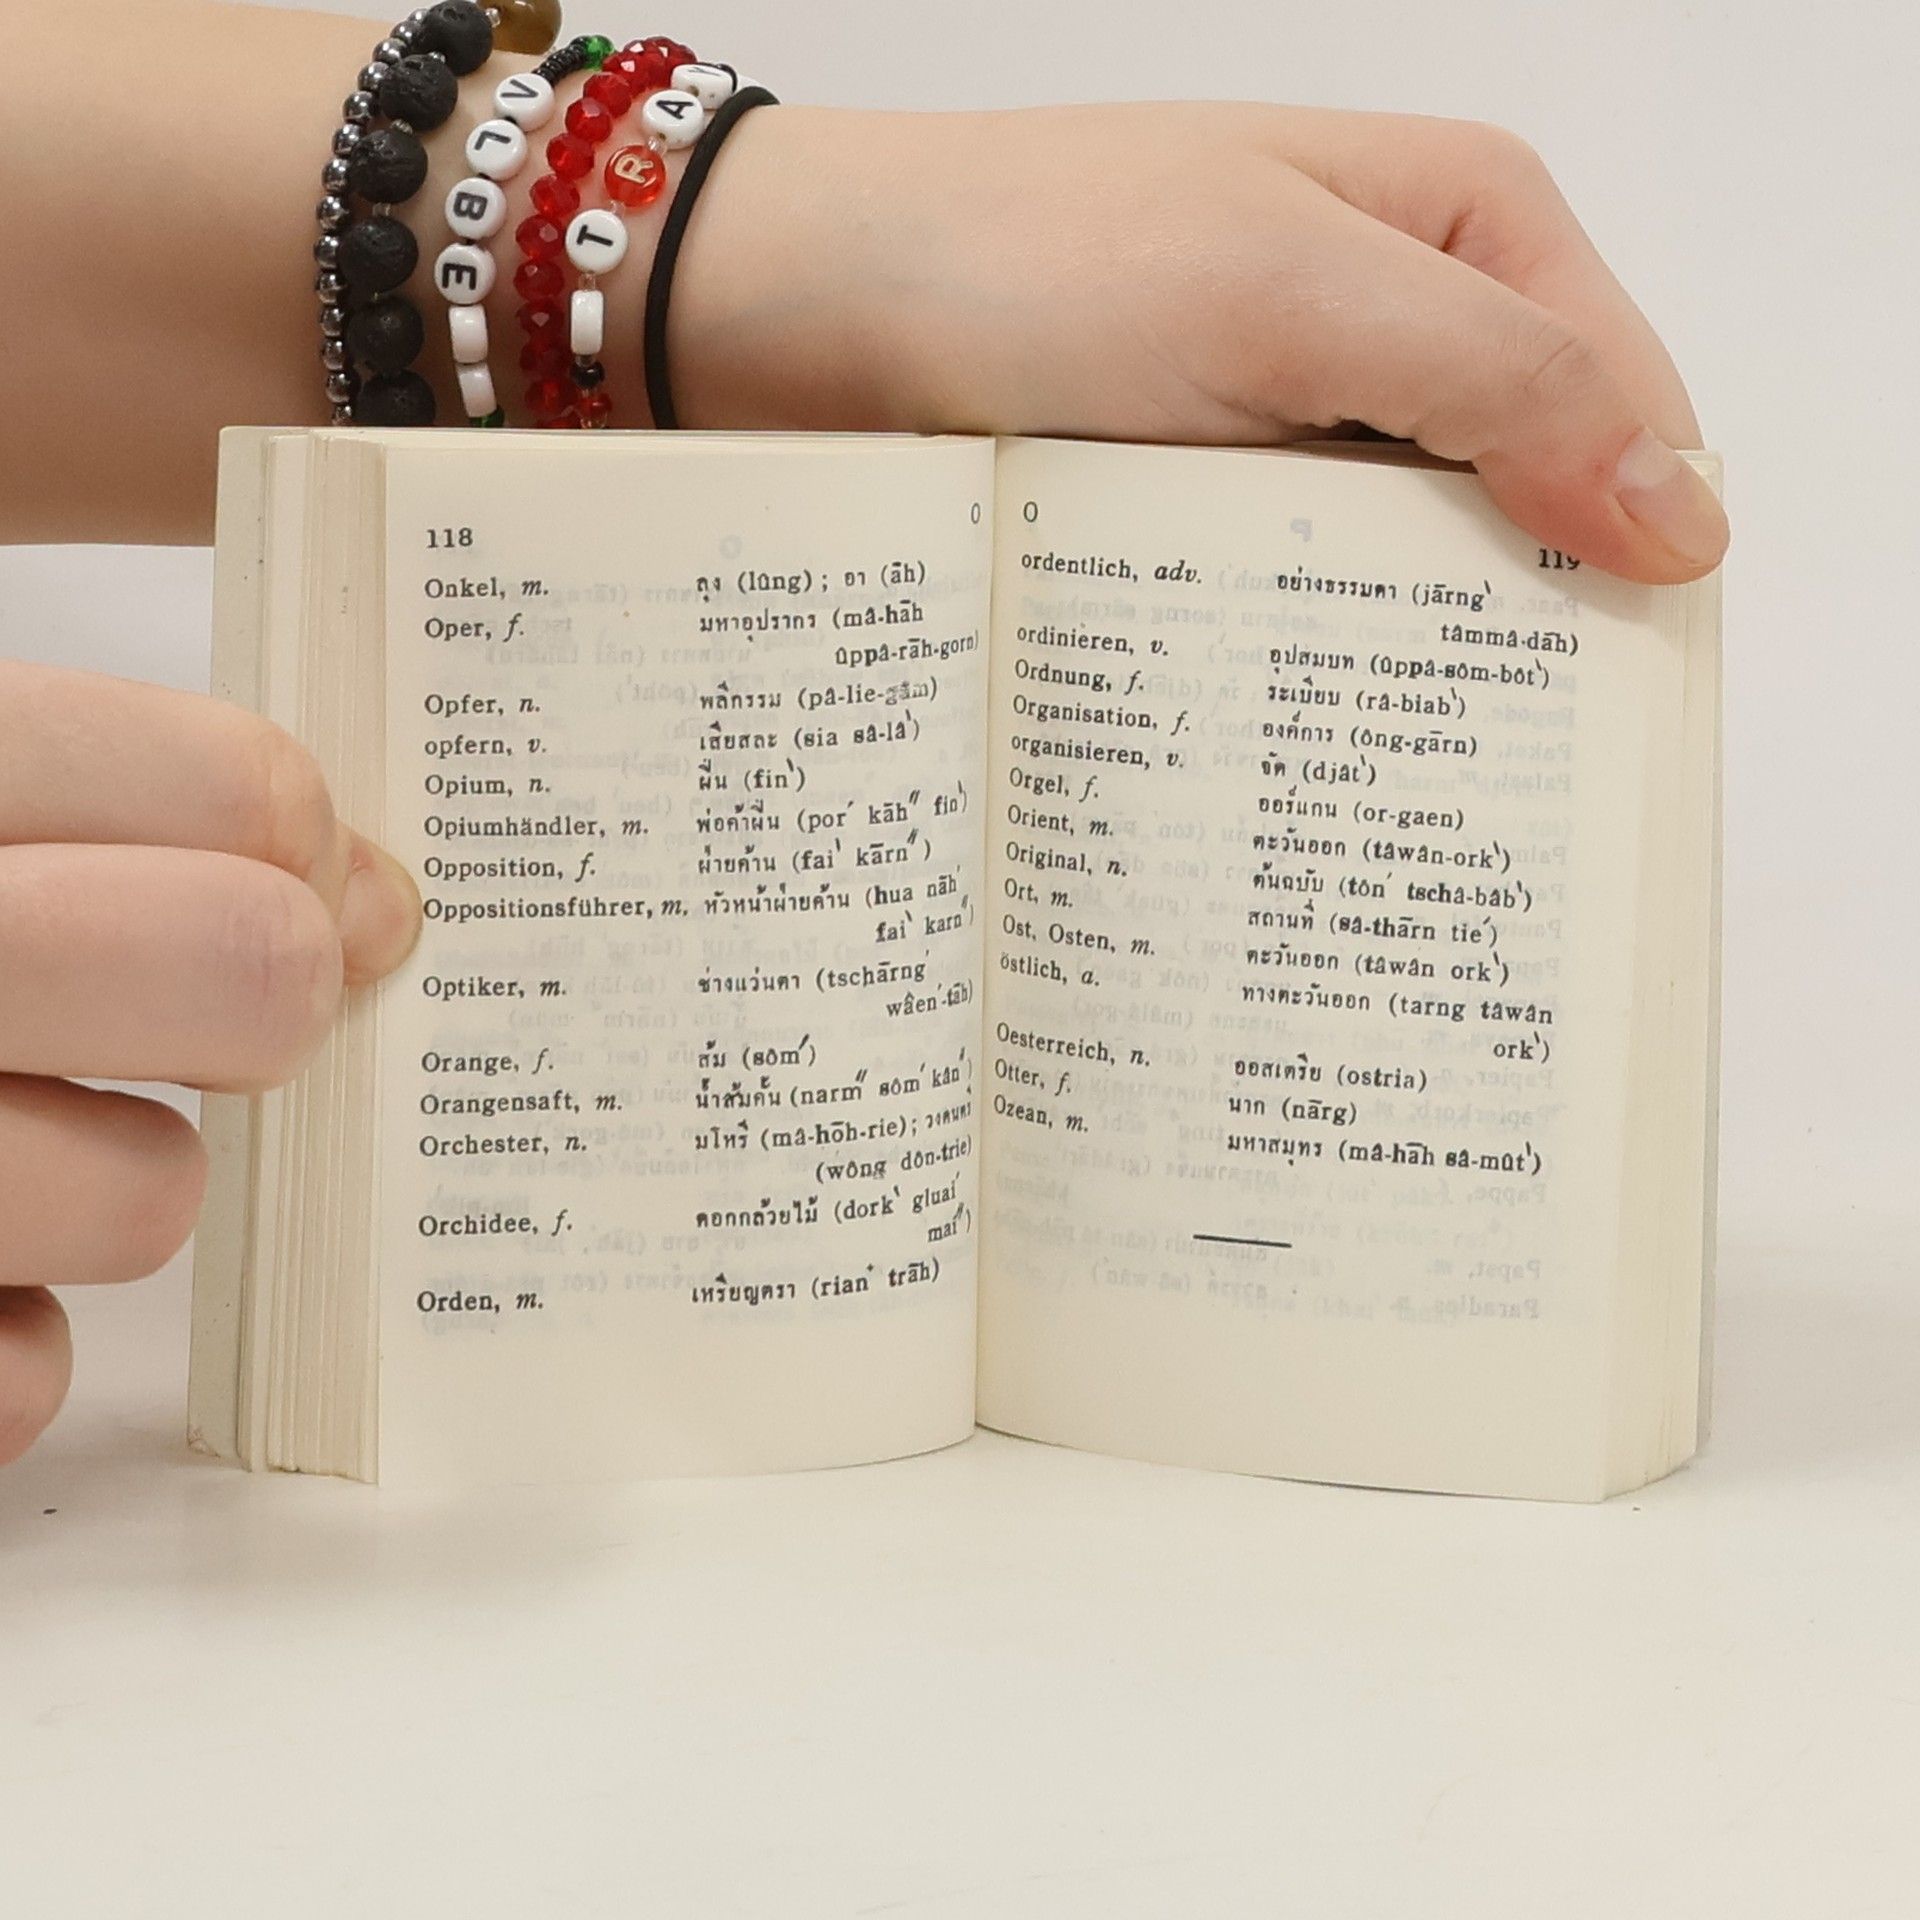 V
L
B
E
A
R
T
118
O
Onkel, m. ลุง (lûng) ; อา (āh)
Oper, f. มหาอุปรากร (mâ-hāh
ûppâ-rāh-gorn)
Opfer, n. พลีกรรม (pâ-lie-gâm)
opfern, v. เสียสละ (sia sâ-lâ‵)
Opium, n. ฝิ่น (fin‵)
Opiumhändler, m. พ่อค้าฝิ่น (por′ kāh″ fin‵)
Opposition, f. ฝ่ายค้าน (fai‵ kārn″)
Oppositionsführer, m. หัวหน้าฝ่ายค้าน (hua nāh′
fai‵ karn″)
Optiker, m. ช่างแว่นตา (tschārng′
wâen′-tāh)
Orange, f. ส้ม (sôm′)
Orangensaft, m. น้ำส้มคั้น (narm″ sôm′ kân″)
Orchester, n. มโหรี (mâ-hōh-rie) ; วงดนตรี
(wông dôn-trie)
Orchidee, f. ดอกกล้วยไม้ (dork‵ gluai′
mai″)
Orden, m. เหรียญตรา (rian⁺ trāh)
O
119
ordentlich, adv. อย่างธรรมดา (jārng‵
tâmmâ-dāh)
ordinieren, v. อุปสมบท (ûppâ-sôm-bôt‵)
Ordnung, f. ระเบียบ (râ-biab‵)
Organisation, f. องค์การ (ông-gārn)
organisieren, v. จัด (djât‵)
Orgel, f. ออร์แกน (or-gaen)
Orient, m. ตะวันออก (tâwân-ork‵)
Original, n. ต้นฉบับ (tôn′ tschâ-bâb‵)
Ort, m. สถานที่ (sâ-thārn tie′)
Ost, Osten, m. ตะวันออก (tâwân ork‵)
östlich, a. ทางตะวันออก (tarng tâwân
ork‵)
Oesterreich, n. ออสเตรีย (ostria)
Otter, f. นาก (nārg)
Ozean, m. มหาสมุทร (mâ-hāh sâ-mût‵)